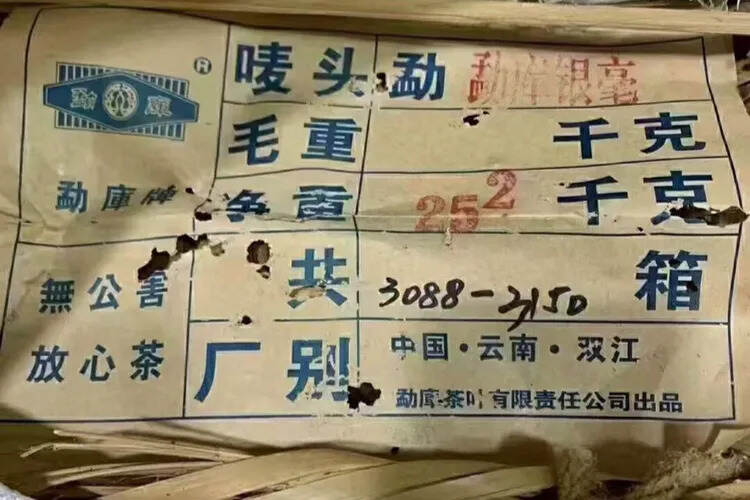 勐庫 ®
勐庫牌
無公害
放心茶
唛头 勐 勐库银毫
毛重 千克
净重 25² 千克
共 3088-2150 箱
厂别 中国·云南·双江
勐库茶叶有限责任公司出品